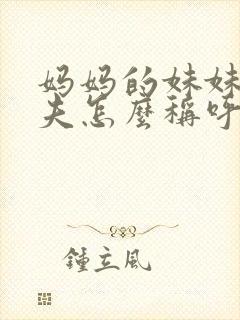 妈妈的妹妹
夫怎麼稱呼
鍾立風